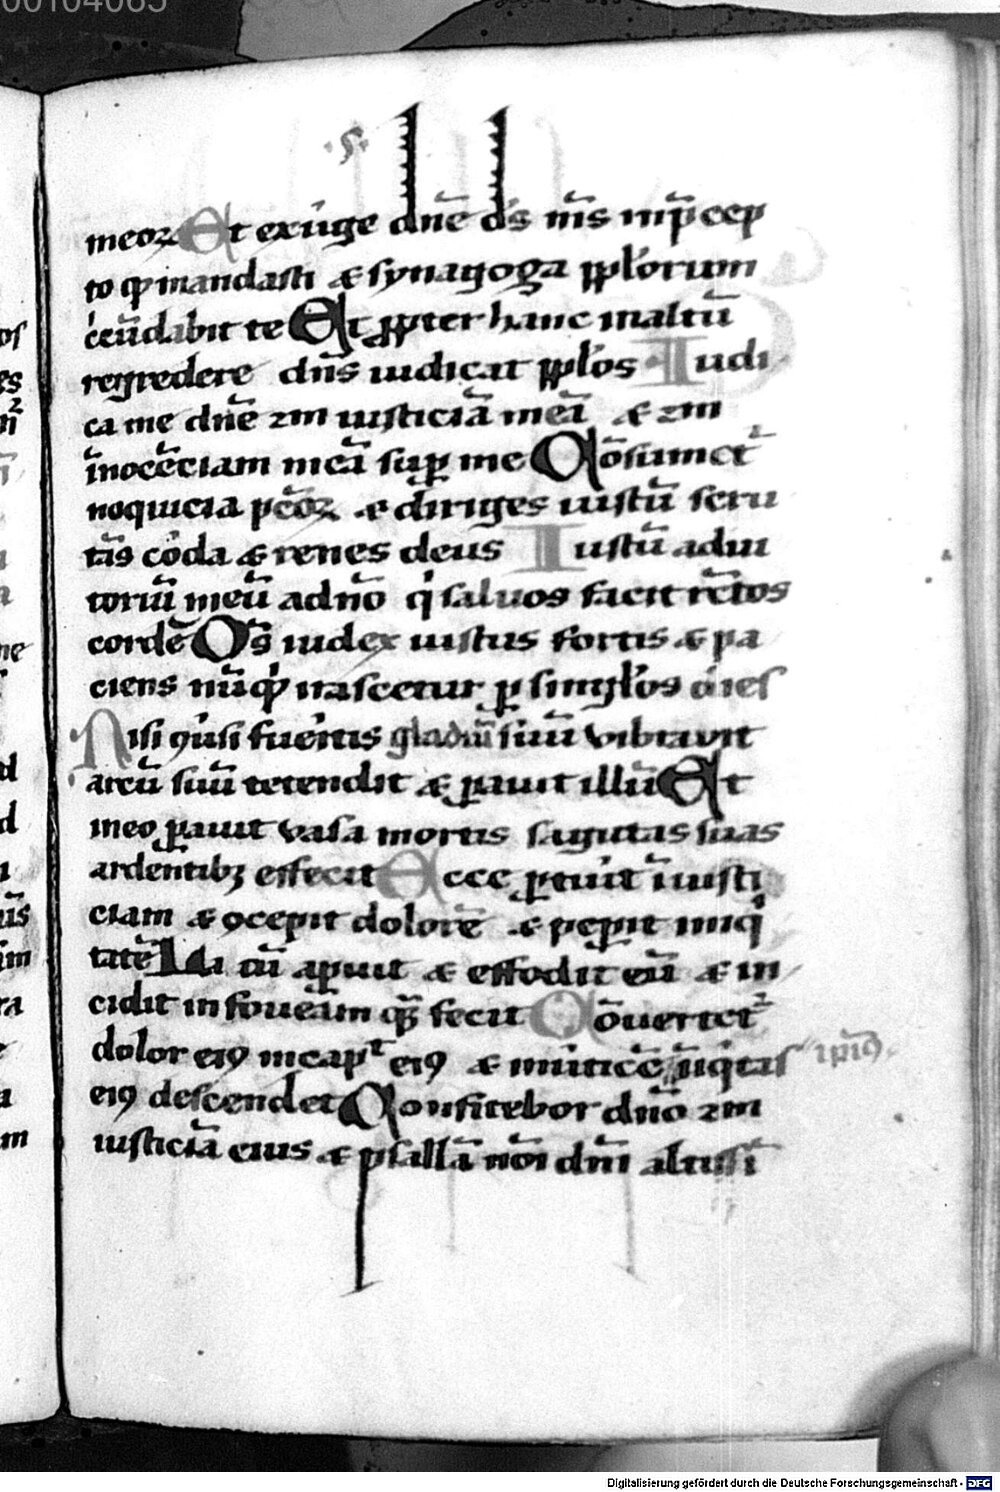 00104065
·s·
meoꝝ Et exúrge dn̄e dꝰs mꝰs in p̄cep
to qͦ mandasti ⁊ synagoga pp̄lorum
ćcūdabit te Et ꝓpter hanc in altū
regredere dn̄s iudicat pp̄los Iudi
ca me dn̄e ẜm iusticiā meā ⁊ ẜm
īnocēciam meā suꝑ me Cōsumet᷑
nequicia pc̄oꝝ ⁊ diriges iustū scru
tās córda ⁊ renes deus Iustū adiu
toriū meū a dn̄o qͥ saluos facit rc̄os
corde Dꝰs iudex iustus fortis ⁊ pa
ciens nūqͥd irascetur ꝑ singͦlos dies
Nisi ꝯuersi fuéritis gladiū suū vibravit
arcū suū tetendit ⁊ ꝑauit illū Et
in eo ꝑauit vasa mortis sagittas suas
ardentibꝫ effecit Ecce ꝑtúrit īiusti
ciam ⁊ ꝯcepit dolorē ⁊ peꝑit iniqͥ
tatē Lacū aꝑuit ⁊ effodit eū ⁊ in
cidit in foueam quā fecit Cōuertet᷑
dolor eiꝰ in capᵗ eiꝰ ⁊ in úticē īiqͥtas ip̄iꝰ
eiꝰ descendet Confitebor dn̄o ẜm
iusticiā eius ⁊ psallā nōi dn̄i altissī
Digitalisierung gefördert durch die Deutsche Forschungsgemeinschaft - DFG